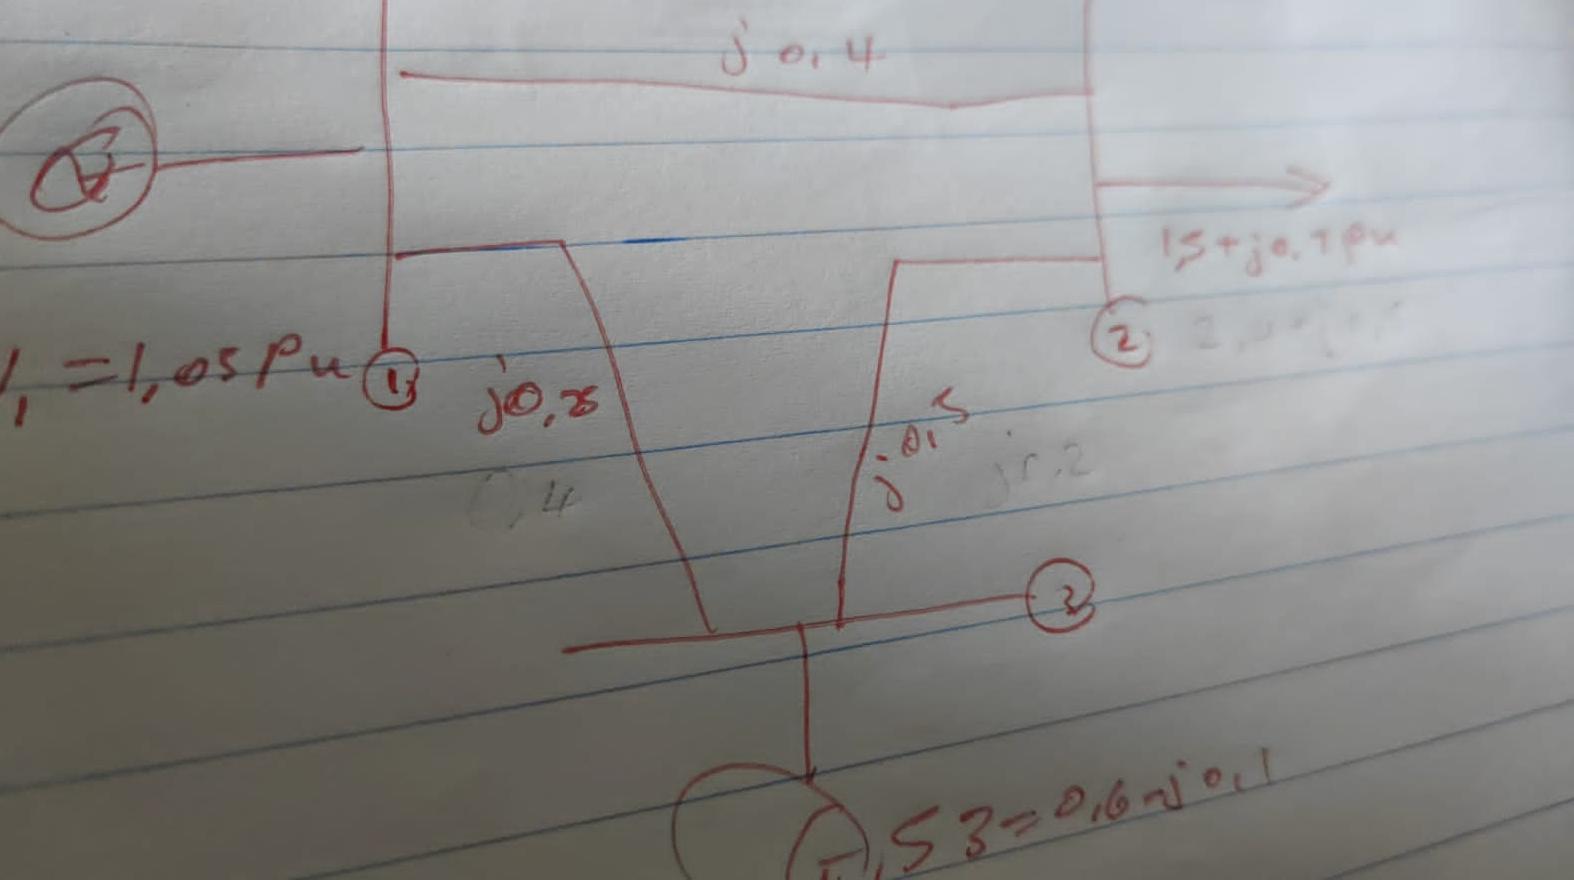 j 0,4
G
1,5+j0,7pu
= 1,05 Pu
1
2
j0,
0,4
j0,5
3
S3=0,6-j0,1